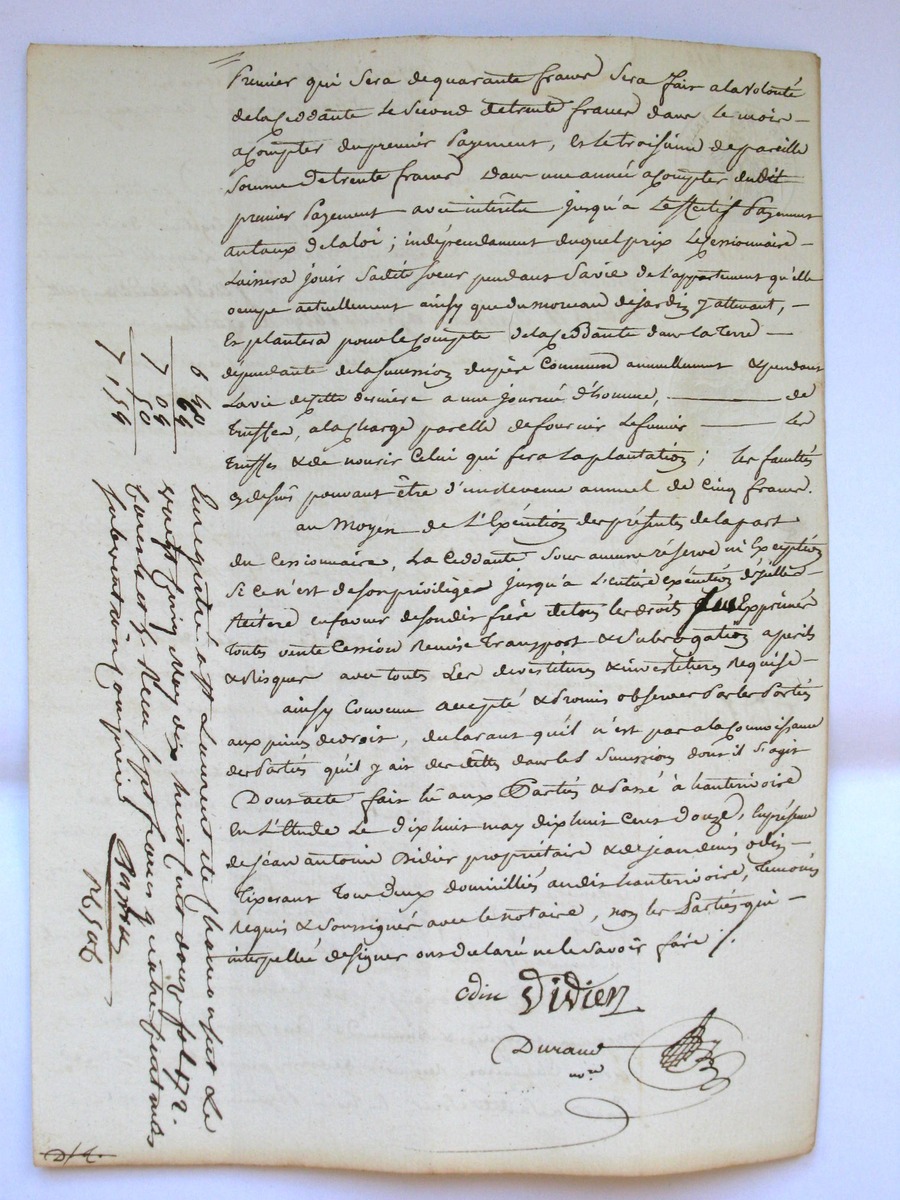 Premier qui sera de quarante francs sera fait a la volonté
de la ceddante le second de trente francs dans le mois
a compter du premier payement, et le troisième de pareille
somme de trente francs dans une année a compter dudit
premier payement avec intérêts jusqu'à l'effectif payement
au taux de la loi ; indépendament duquel prix le cessionnaire
laissera jouir sadite soeur pendant sa vie de l'appartement qu'elle
occupe actuellement ainsy que du morceau de jardin y attenant,
et plantera pour le compte de la ceddante dans la terre
dépendante de la succession du père commun annuellement & pendant
la vie de cette dernière a une journée d'homme, de
truffes, a la charge par elle de fournir le fumier les
truffes & de nourir celui qui fera la plantation ; les facultés
cy dessus pouvant être d'un revenu annuel de cinq francs.
au moyen de l'exécution des présentes de la part
du cessionnaire, la ceddante sous aucune réserve ni exception
si ce n'est de son privilège jusqu'à l'entière exécution d'icelles
réitère en faveur de sondit frère de tous les droits sus exprimés
toute vente cession remise transport & subrogation a périls
& risques avec toutes les devestitures & investitures requises
ainsy convenu accepté & promis observer par les parties
aux peines de droit, déclarant qu'il n'est pas a la connoissance
des parties qu'il y ait des dettes dans les successions dont il s'agit
Dont acte fait lu aux parties & passé à hauterivoire
en l'étude le dix huit may dix huit cent douze, en présence
de jean antoine Didier propriétaire & de jean denis odin
tixerant tous deux domiciliés audit hauterivoire, témoins
requis & soussignés avec le notaire, non les parties qui
interpellées de signer ont déclaré ne le savoir faire ./.
odin Didier
Durand
nore
6 40
64
7 04
50
7 154
Enregistré a St Laurent de chamousset le
vingt cinq may dix huit cent douze fol 172.
cases et Reçu sept francs quatre centimes
subvention comprise
D/4.